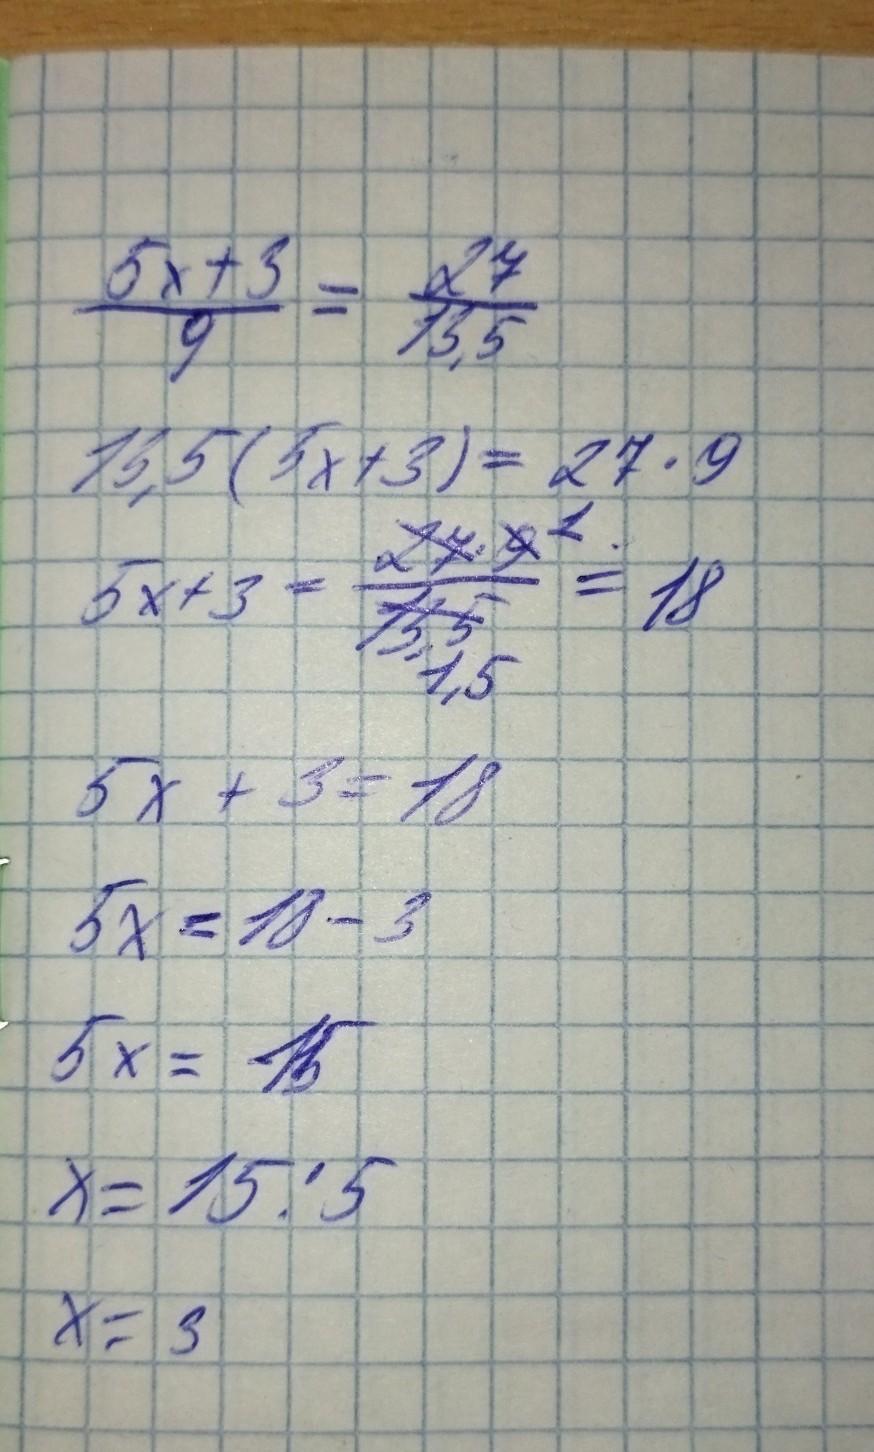 5x+3/9 = 27/13,5
13,5(5x+3)=27·9
5x+3 = 27·9 1/13,5 1,5 = 18
5x + 3 = 18
5x = 18 - 3
5x = 15
x = 15 : 5
x = 3